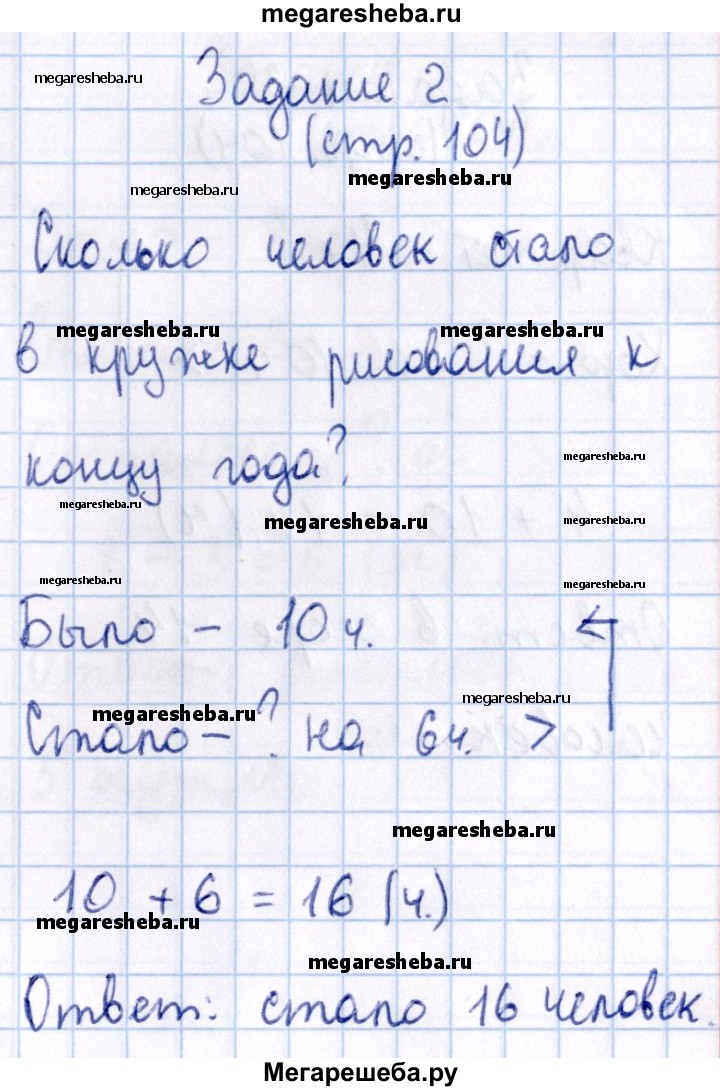 megaresheba.ru
megaresheba.ru
Задание 2
(стр. 104)
megaresheba.ru
megaresheba.ru
Сколько человек стало
megaresheba.ru megaresheba.ru
в кружке рисования к
megaresheba.ru
концу года?
megaresheba.ru
megaresheba.ru megaresheba.ru
megaresheba.ru megaresheba.ru
Было - 10 ч.
megaresheba.ru
megaresheba.ru
Стало - ? на 6 ч. >
megaresheba.ru
10 + 6 = 16 (ч.)
megaresheba.ru
megaresheba.ru
Ответ: стало 16 человек.
Мегарешеба.ру